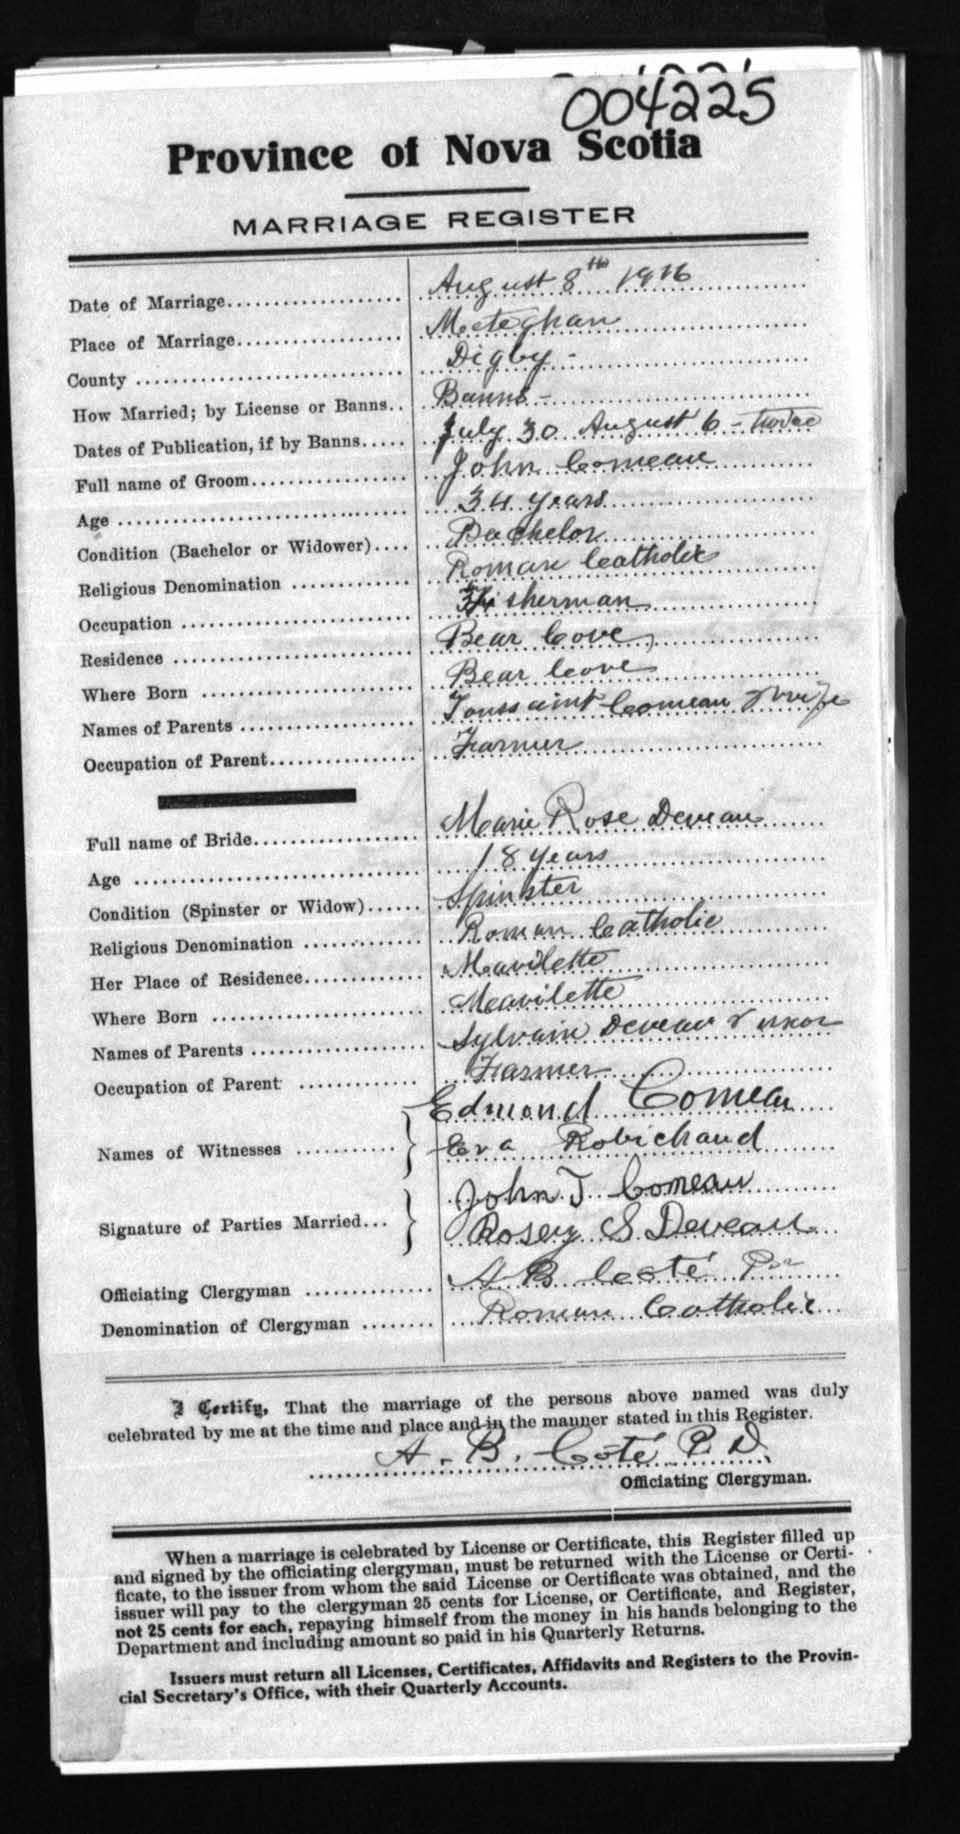 004225
Province of Nova Scotia
MARRIAGE REGISTER
Date of Marriage.................... August 8th 1916
Place of Marriage................... Meteghan
County .............................. Digby -
How Married; by License or Banns.. Banns -
Dates of Publication, if by Banns..... July 30 August 6 - twice
Full name of Groom.................. John Comeau
Age ................................. 34 years
Condition (Bachelor or Widower).... Bachelor
Religious Denomination ............. Roman Catholic
Occupation .......................... Fisherman
Residence ........................... Bear Cove,
Where Born .......................... Bear Cove
Names of Parents .................... Toussaint Comeau & wife
Occupation of Parent................. Farmer
Full name of Bride................... Marie Rose Deveau
Age ................................. 18 years
Condition (Spinster or Widow)...... Spinster
Religious Denomination ............. Roman Catholic
Her Place of Residence............. Mavilette
Where Born .......................... Mavilette
Names of Parents .................... Sylvain Deveau & uxor
Occupation of Parent ............... Farmer
Edmond Comeau
Names of Witnesses ........... Eva Robichaud
John T Comeau
Signature of Parties Married... Rosey S Deveau
Officiating Clergyman ............... A B Coté
Denomination of Clergyman ........ Roman Catholic
I Certify, That the marriage of the persons above named was duly
celebrated by me at the time and place and in the manner stated in this Register.
A. B. Coté P. D.
Officiating Clergyman.
When a marriage is celebrated by License or Certificate, this Register filled up
and signed by the officiating clergyman, must be returned with the License or Certi-
ficate, to the issuer from whom the said License or Certificate was obtained, and the
issuer will pay to the clergyman 25 cents for License, or Certificate, and Register,
not 25 cents for each, repaying himself from the money in his hands belonging to the
Department and including amount so paid in his Quarterly Returns.
Issuers must return all Licenses, Certificates, Affidavits and Registers to the Provin-
cial Secretary's Office, with their Quarterly Accounts.